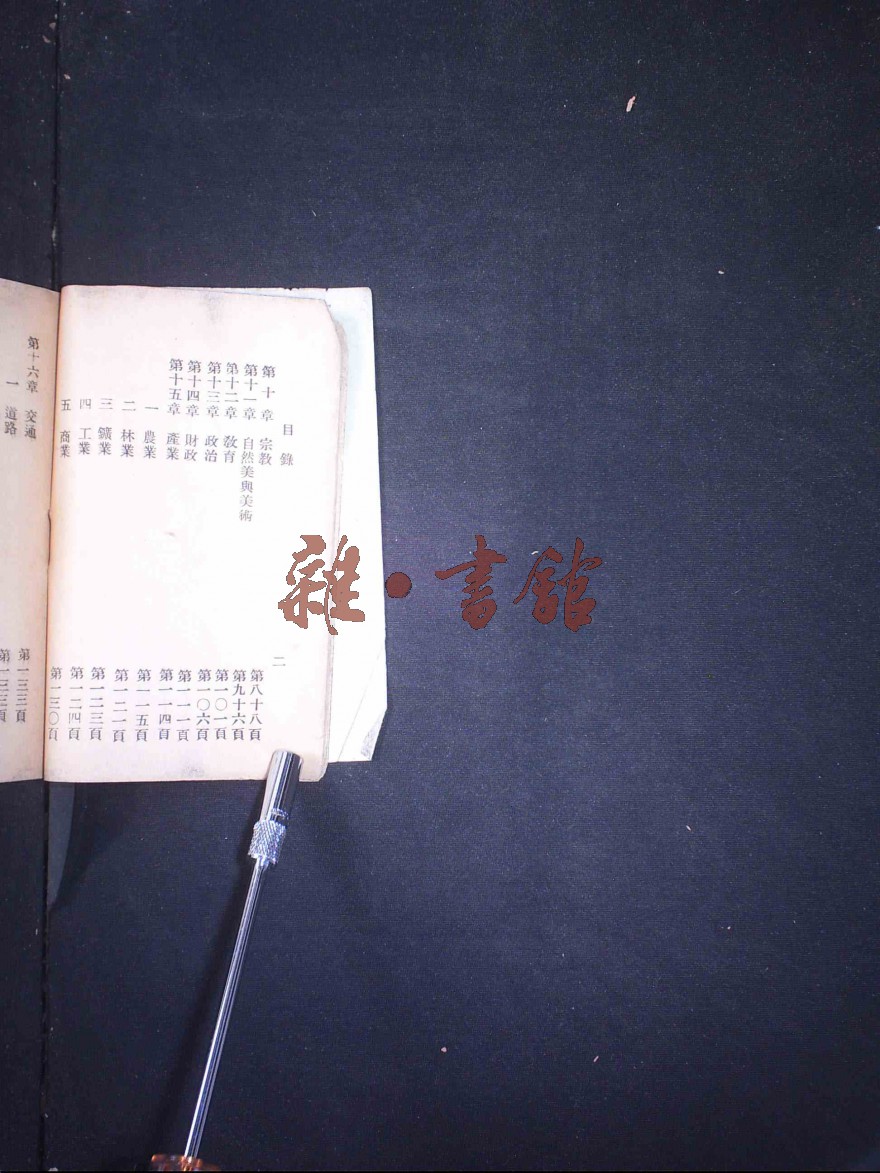 目錄 二
第十章 宗教 第八十八頁
第十一章 自然美與美術 第九十六頁
第十二章 敎育 第一〇一頁
第十三章 政治 第一〇六頁
第十四章 財政 第一一一頁
第十五章 產業 第一一四頁
一 農業 第一一五頁
二 林業 第一二一頁
三 鑛業 第一二三頁
四 工業 第一二四頁
五 商業 第一三〇頁
第十六章 交通 第一三三頁
一 道路 第一三三頁
雜·書館